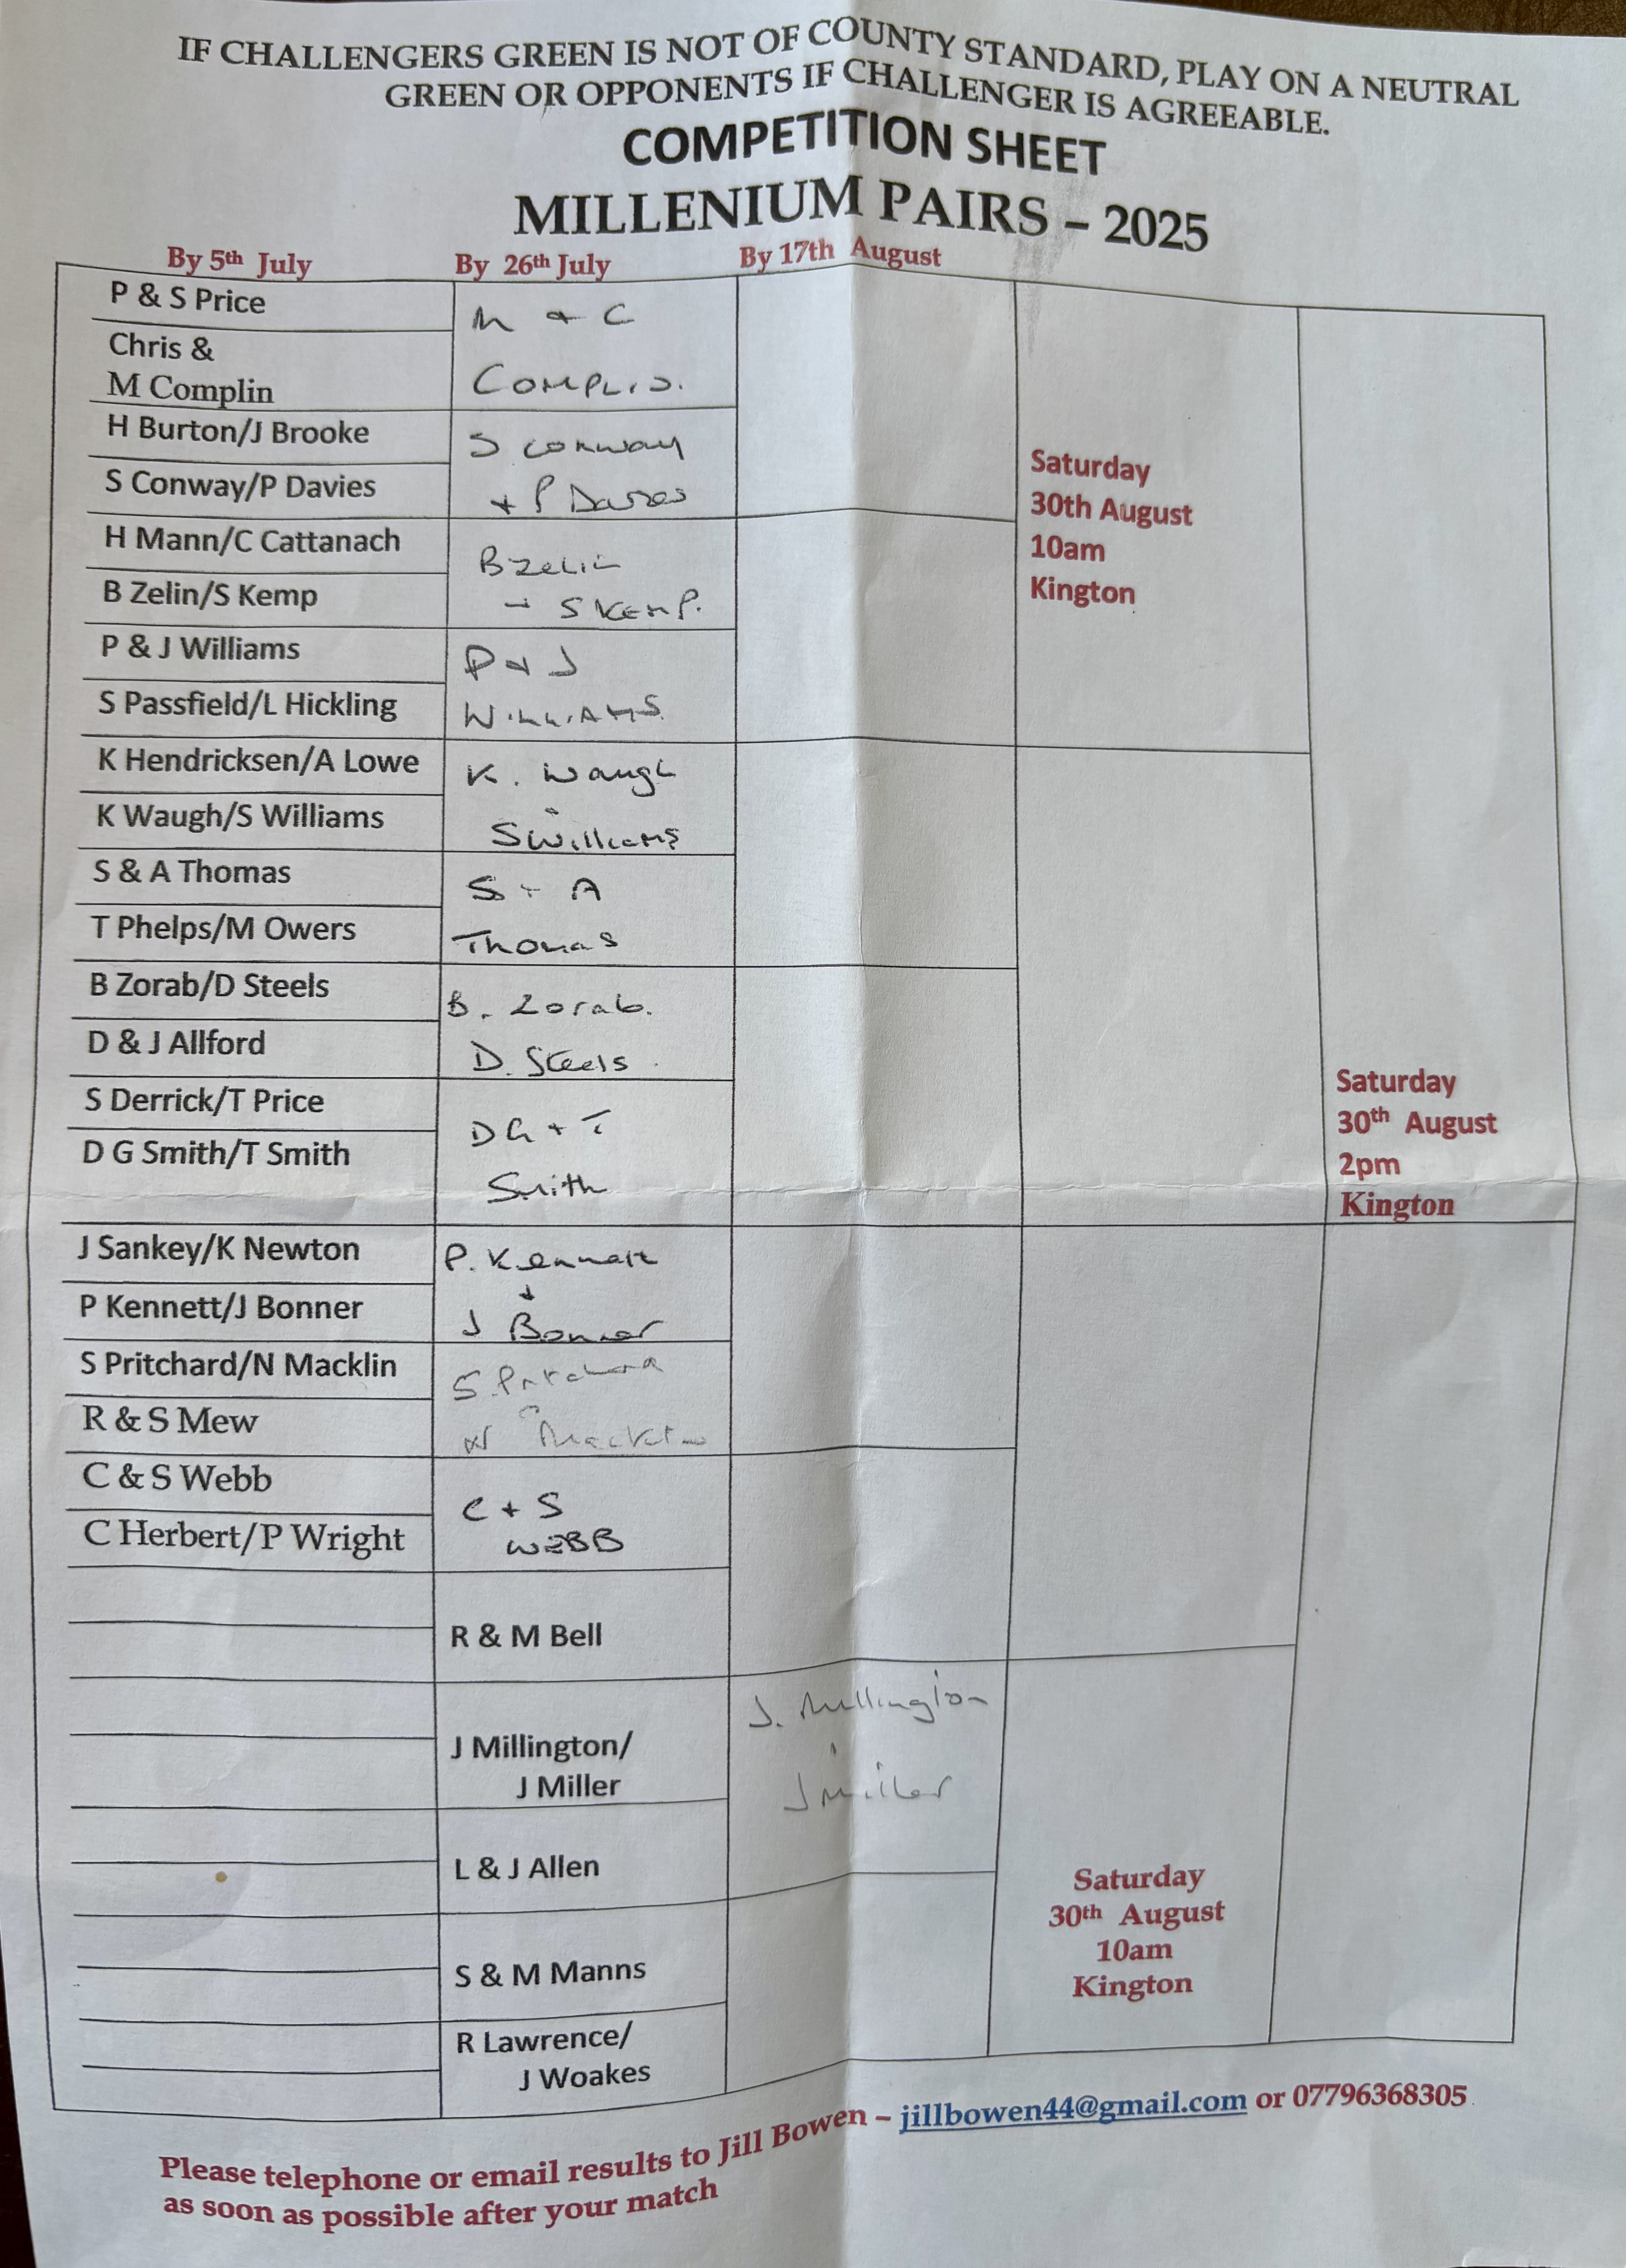 IF CHALLENGERS GREEN IS NOT OF COUNTY STANDARD, PLAY ON A NEUTRAL
GREEN OR OPPONENTS IF CHALLENGER IS AGREEABLE.
COMPETITION SHEET
MILLENIUM PAIRS – 2025
By 5th July
By 26th July
By 17th August
P & S Price
Chris &
M Complin
H Burton/J Brooke
S Conway/P Davies
H Mann/C Cattanach
B Zelin/S Kemp
P & J Williams
S Passfield/L Hickling
K Hendricksen/A Lowe
K Waugh/S Williams
S & A Thomas
T Phelps/M Owers
B Zorab/D Steels
D & J Allford
S Derrick/T Price
D G Smith/T Smith
J Sankey/K Newton
P Kennett/J Bonner
S Pritchard/N Macklin
R & S Mew
C & S Webb
C Herbert/P Wright
M + C
COMPLIN.
S Conway
+ P Davies
B Zelin
+ S KEMP.
P + J
WILLIAMS
K. Waugh
S Williams
S + A
Thomas
B. Zorab.
D. Steels
D G + T
Smith
P. Kennett
+
J Bonner
S. Pritchard
N Macklin
C + S
WEBB
R & M Bell
J Millington/
J Miller
L & J Allen
S & M Manns
R Lawrence/
J Woakes
J. Millington
J Miller
Saturday
30th August
10am
Kington
Saturday
30th August
10am
Kington
Saturday
30th August
2pm
Kington
Please telephone or email results to Jill Bowen – jillbowen44@gmail.com or 07796368305
as soon as possible after your match